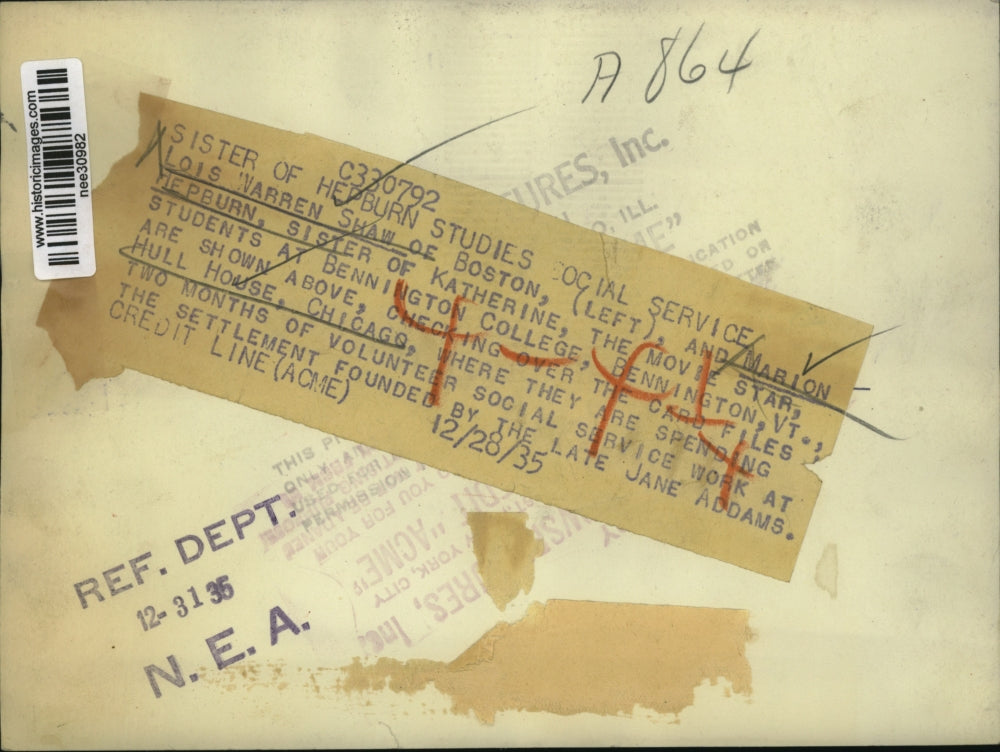 A 864
www.historicimages.com
nee30982
URES, Inc.
ILL.
C330792
SISTER OF HEPBURN STUDIES SOCIAL SERVICE
LOIS WARREN SHAW OF BOSTON, (LEFT), AND MARION
HEPBURN, SISTER OF KATHERINE, THE MOVIE STAR,
STUDENTS AT BENNINGTON COLLEGE, BENNINGTON, VT.,
ARE SHOWN ABOVE, CHECKING OVER THE CARD FILES
HULL HOUSE, CHICAGO, WHERE THEY ARE SPENDING
TWO MONTHS OF VOLUNTEER SOCIAL SERVICE WORK AT
THE SETTLEMENT FOUNDED BY THE LATE JANE ADDAMS.
CREDIT LINE (ACME) 12/28/35
THIS
"ACME"
YORK, CITY
RES, Inc.
REF. DEPT.
12-31 35
N. E. A.